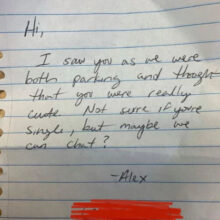 Hi,
I saw you as we were
both parking and thought
that you were really
cute. Not sure if you're
single, but maybe we
can chat?
-Alex